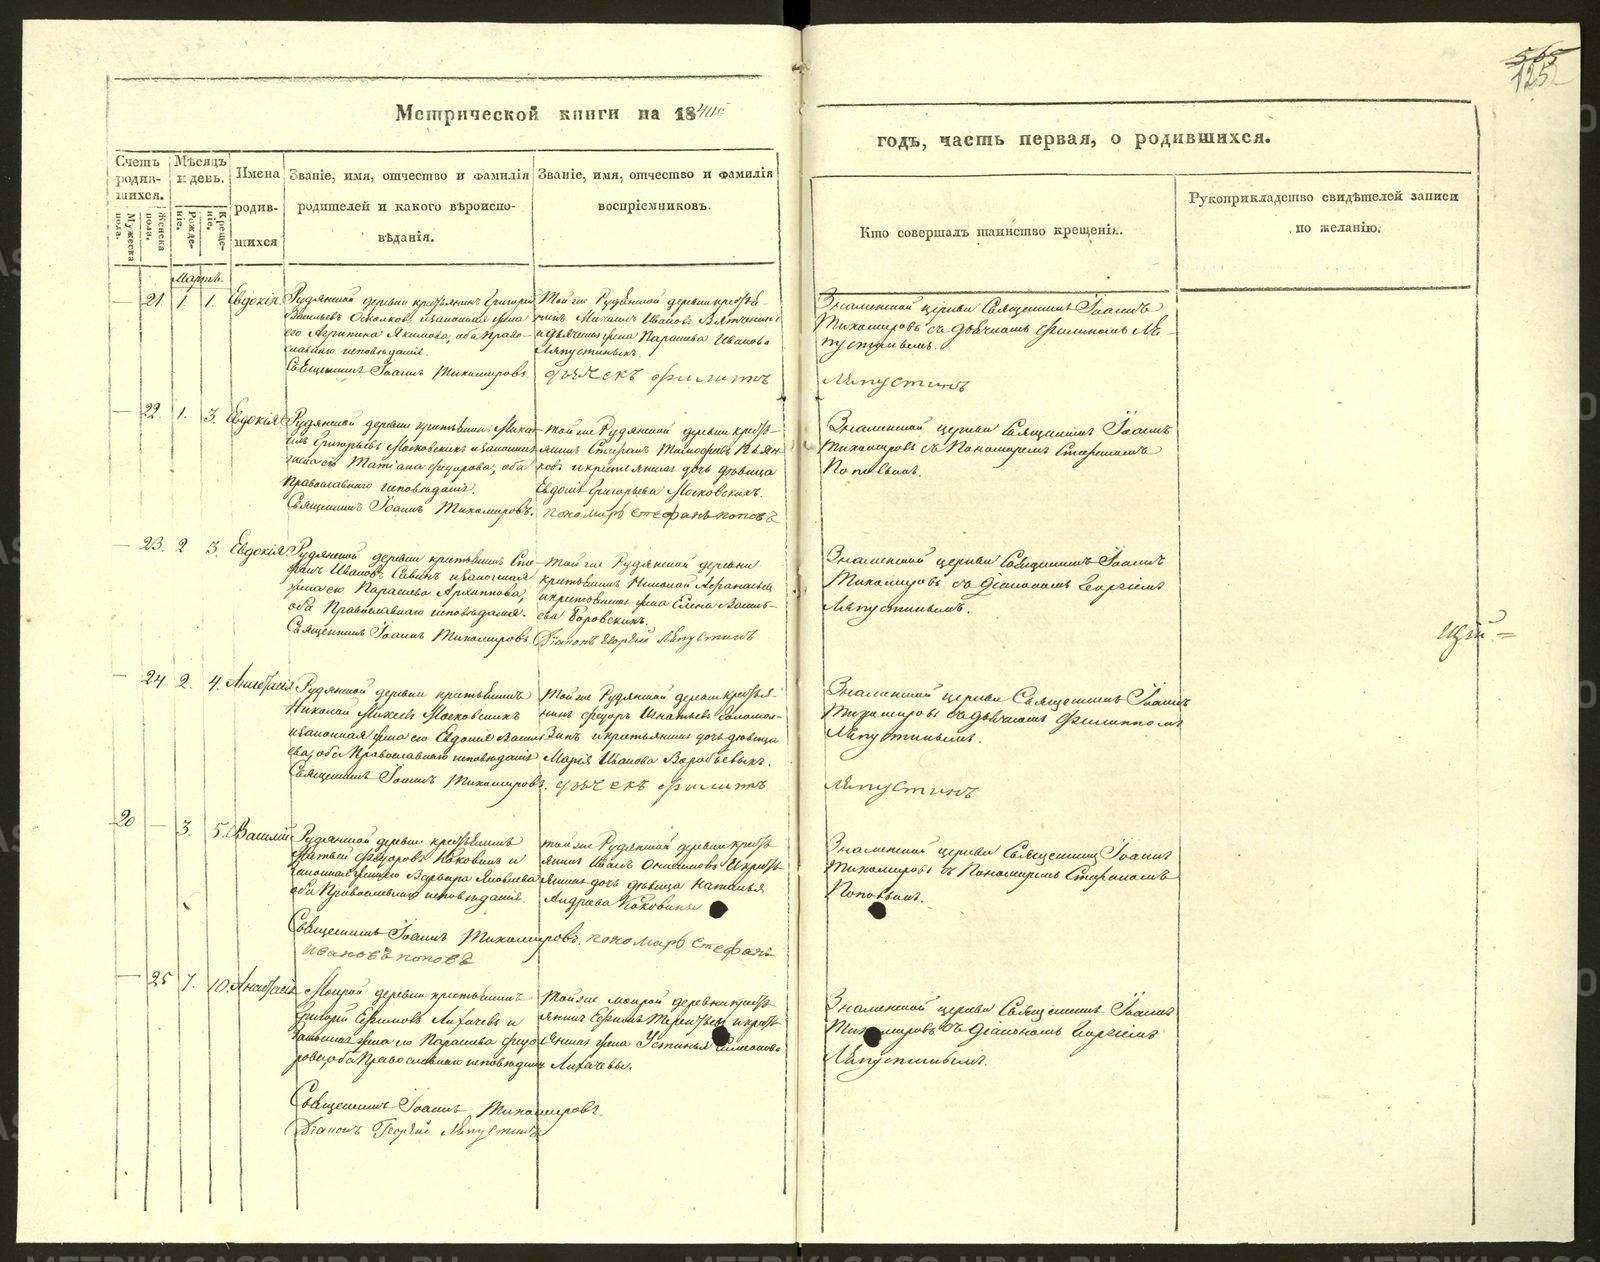 565
1252
Метрической книги на 18
годъ, часть первая, о родившихся.
Счетъ родив- шихся.
Мужеска пола.
Женска пола.
Мѣсяцъ и день.
Рожде- ніе.
Креще- ніе.
Имена родив- шихся
Званіе, имя, отчество и фамилія
родителей и какого вѣроиспо-
вѣданія.
Званіе, имя, отчество и фамилія
воспріемниковъ.
Кто совершалъ таинство крещенія.
Рукоприкладство свидѣтелей записи
по желанію.
Мартъ.
— 21. 1. 1. Евдокія
Рудянской деревни крестьянинъ Григорій
Васильевъ и законная жена
его Агрипина Якимова, оба Право-
славнаго исповѣданія.
Священникъ Іоаннъ Тихомировъ
Той же Рудянской деревни крестья-
нинъ Михаилъ Ивановъ
и дьячкова жена Парасева Иванова
Ляпустиныхъ.
дьячекъ филиппъ
Знаменской церкви Священникъ Іоаннъ
Тихомировъ съ дьячкомъ Филиппомъ Ля-
пустинымъ.
Ляпустинъ
— 22. 1. 3. Евдокія
Рудянской деревни крестьянинъ Миха-
илъ Григорьевъ Московскихъ и законная
жена его Татіана Федорова, оба
Православнаго исповѣданія.
Священникъ Іоаннъ Тихомировъ.
той же Рудянской деревни кресть-
янинъ Стефанъ Тимофеевъ Пьян-
ковъ и крестьянская дочь дѣвица
Евдокія Григорьева Московскихъ.
пономарь стефанъ поповъ
Знаменской церкви Священникъ Іоаннъ
Тихомировъ съ Пономаремъ Стефаномъ
Поповымъ.
— 23. 2 3. Евдокія
Рудянской деревни крестьянинъ Сте-
фанъ Ивановъ Савинъ и законная
жена его Парасева Архиппова,
оба Православнаго исповѣданія.
Священникъ Іоаннъ Тихомировъ.
той же Рудянской деревни
крестьянинъ Николай Афанасьевъ
и крестьянская жена Елена Василь-
ева Боровскихъ.
Діаконъ Георгій Ляпустинъ
Знаменской церкви Священникъ Іоаннъ
Тихомировъ съ Діакономъ Георгіемъ
Ляпустинымъ.
— 24 2. 4. Анастасія
Рудянской деревни крестьянинъ
Николай Михеевъ Московскихъ
и законная жена его Евдокія Василь-
ева, оба Православнаго исповѣданія
Священникъ Іоаннъ Тихомировъ.
Той же Рудянской деревни крестья-
нинъ Федоръ Игнатьевъ
и крестьянская дочь дѣвица
Марія Иванова Воробьевыхъ.
дьячекъ филиппъ
Знаменской церкви Священникъ Іоаннъ
Тихомировъ съ дьячкомъ Филиппомъ
Ляпустинымъ.
Ляпустинъ
20 — 3. 5. Василій
Рудянской деревни крестьянинъ
Матвей Федоровъ Коковинъ и
законная жена его Варвара Яковлева
оба Православнаго исповѣданія
Священникъ Іоаннъ Тихомировъ. пономарь Стефанъ
ивановъ поповъ
той же Рудянской деревни кресть-
янинъ Иванъ Онисимовъ и кресть-
янская дочь дѣвица Наталья
Андреева Коковины
Знаменской церкви Священникъ Іоаннъ
Тихомировъ съ Пономаремъ Стефаномъ
Поповымъ.
— 25 7. 10. Анастасія
Мокрой деревни крестьянинъ
Григорій Ефимовъ Лихачевъ и
Законная жена его Парасева Федо-
рова, оба Православнаго исповѣданія
Священникъ Іоаннъ Тихомировъ.
Діаконъ Георгій Ляпустинъ
Той же мокрой деревни кресть-
янинъ Ефимъ Терентьевъ и кресть-
янская жена Устинья Симеонова
Лихачевы.
Знаменской церкви Священникъ Іоаннъ
Тихомировъ съ Діакономъ Георгіемъ
Ляпустинымъ.
METRIKI.GASO-URAL.RU
METRIKI.GASO-URAL.RU
METRIKI.GASO-URAL.RU